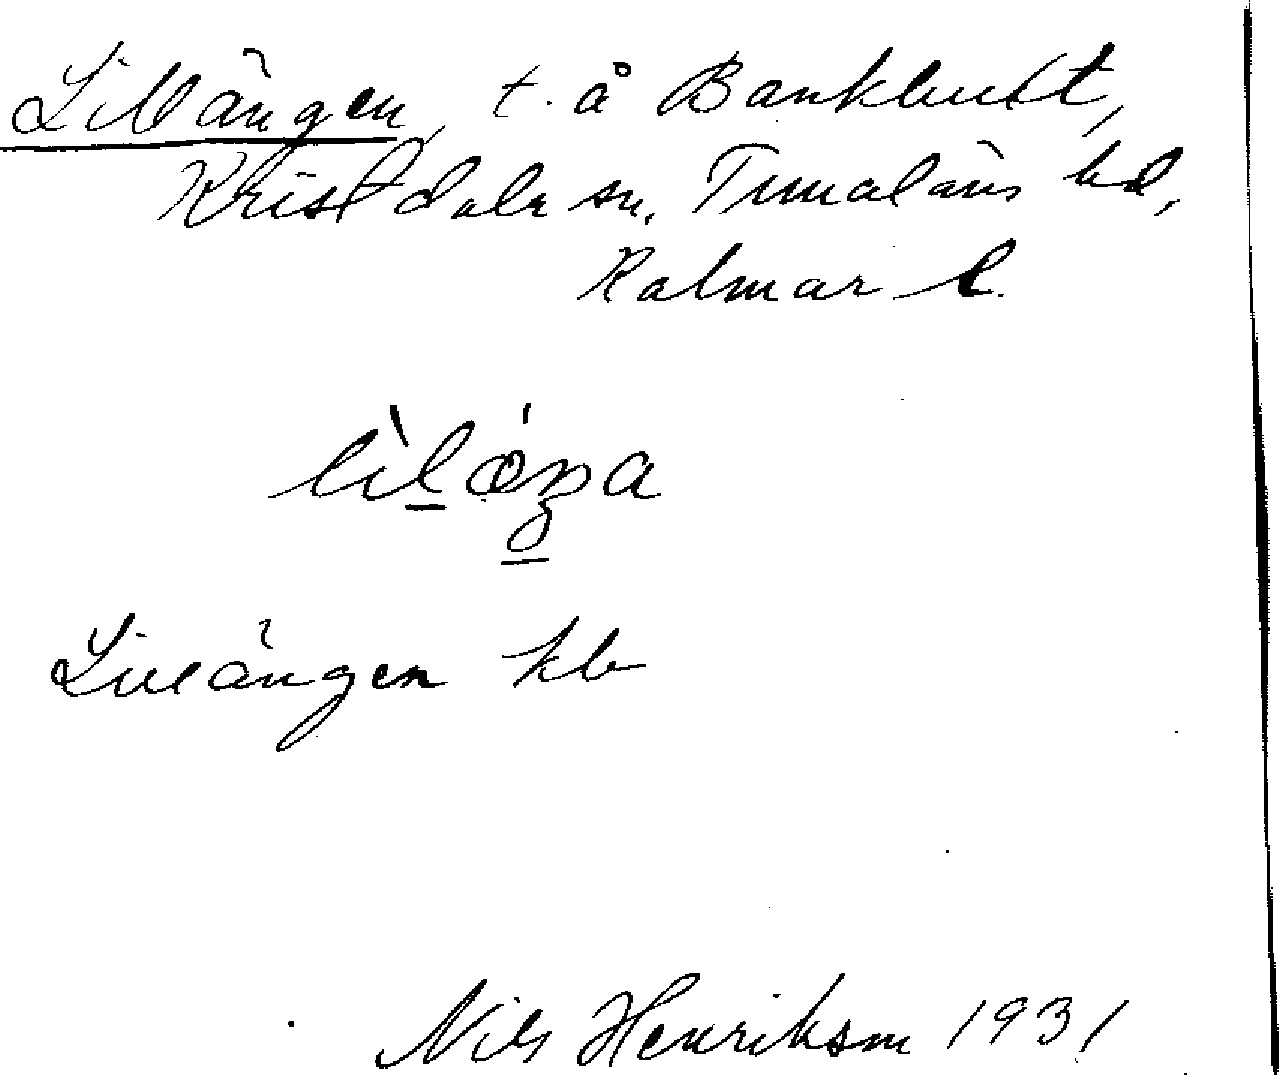 Lillängen, t. å Bankhult,
Kristdala sn, Tunaläns hd,
Kalmar l.
lìlǽŋa
Lillängen kb
Nils Henriksson 1931